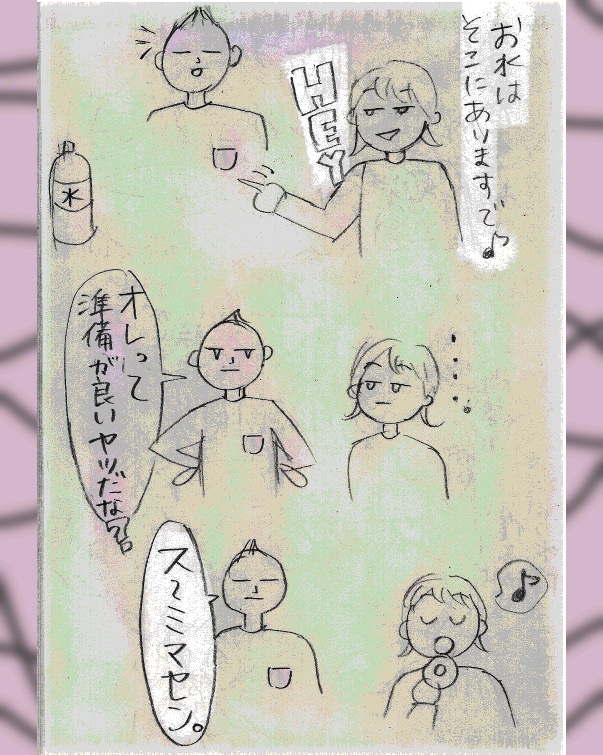 お水は
そこにありますで♪
HEY
水
オレって
準備が良いヤツだな?
‥‥。
ス〜ミマセン。
♪